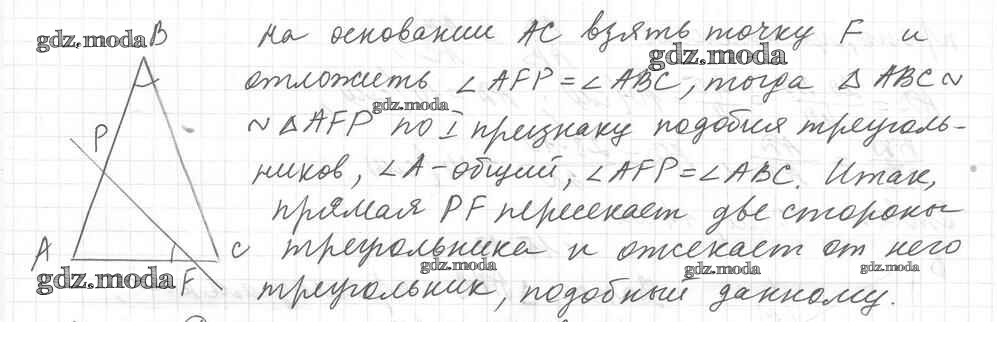 gdz.moda
B
P
A
C
F
gdz.moda
на основании AC взять точку F и
gdz.moda
отложить ∠AFP = ∠ABC, тогда △ABC ~
gdz.moda
~ △AFP по I признаку подобия треуголь-
ников, ∠A - общий, ∠AFP = ∠ABC. Итак,
прямая PF пересекает две стороны
треугольника и отсекает от него
gdz.moda gdz.moda gdz.moda
треугольник, подобный данному.